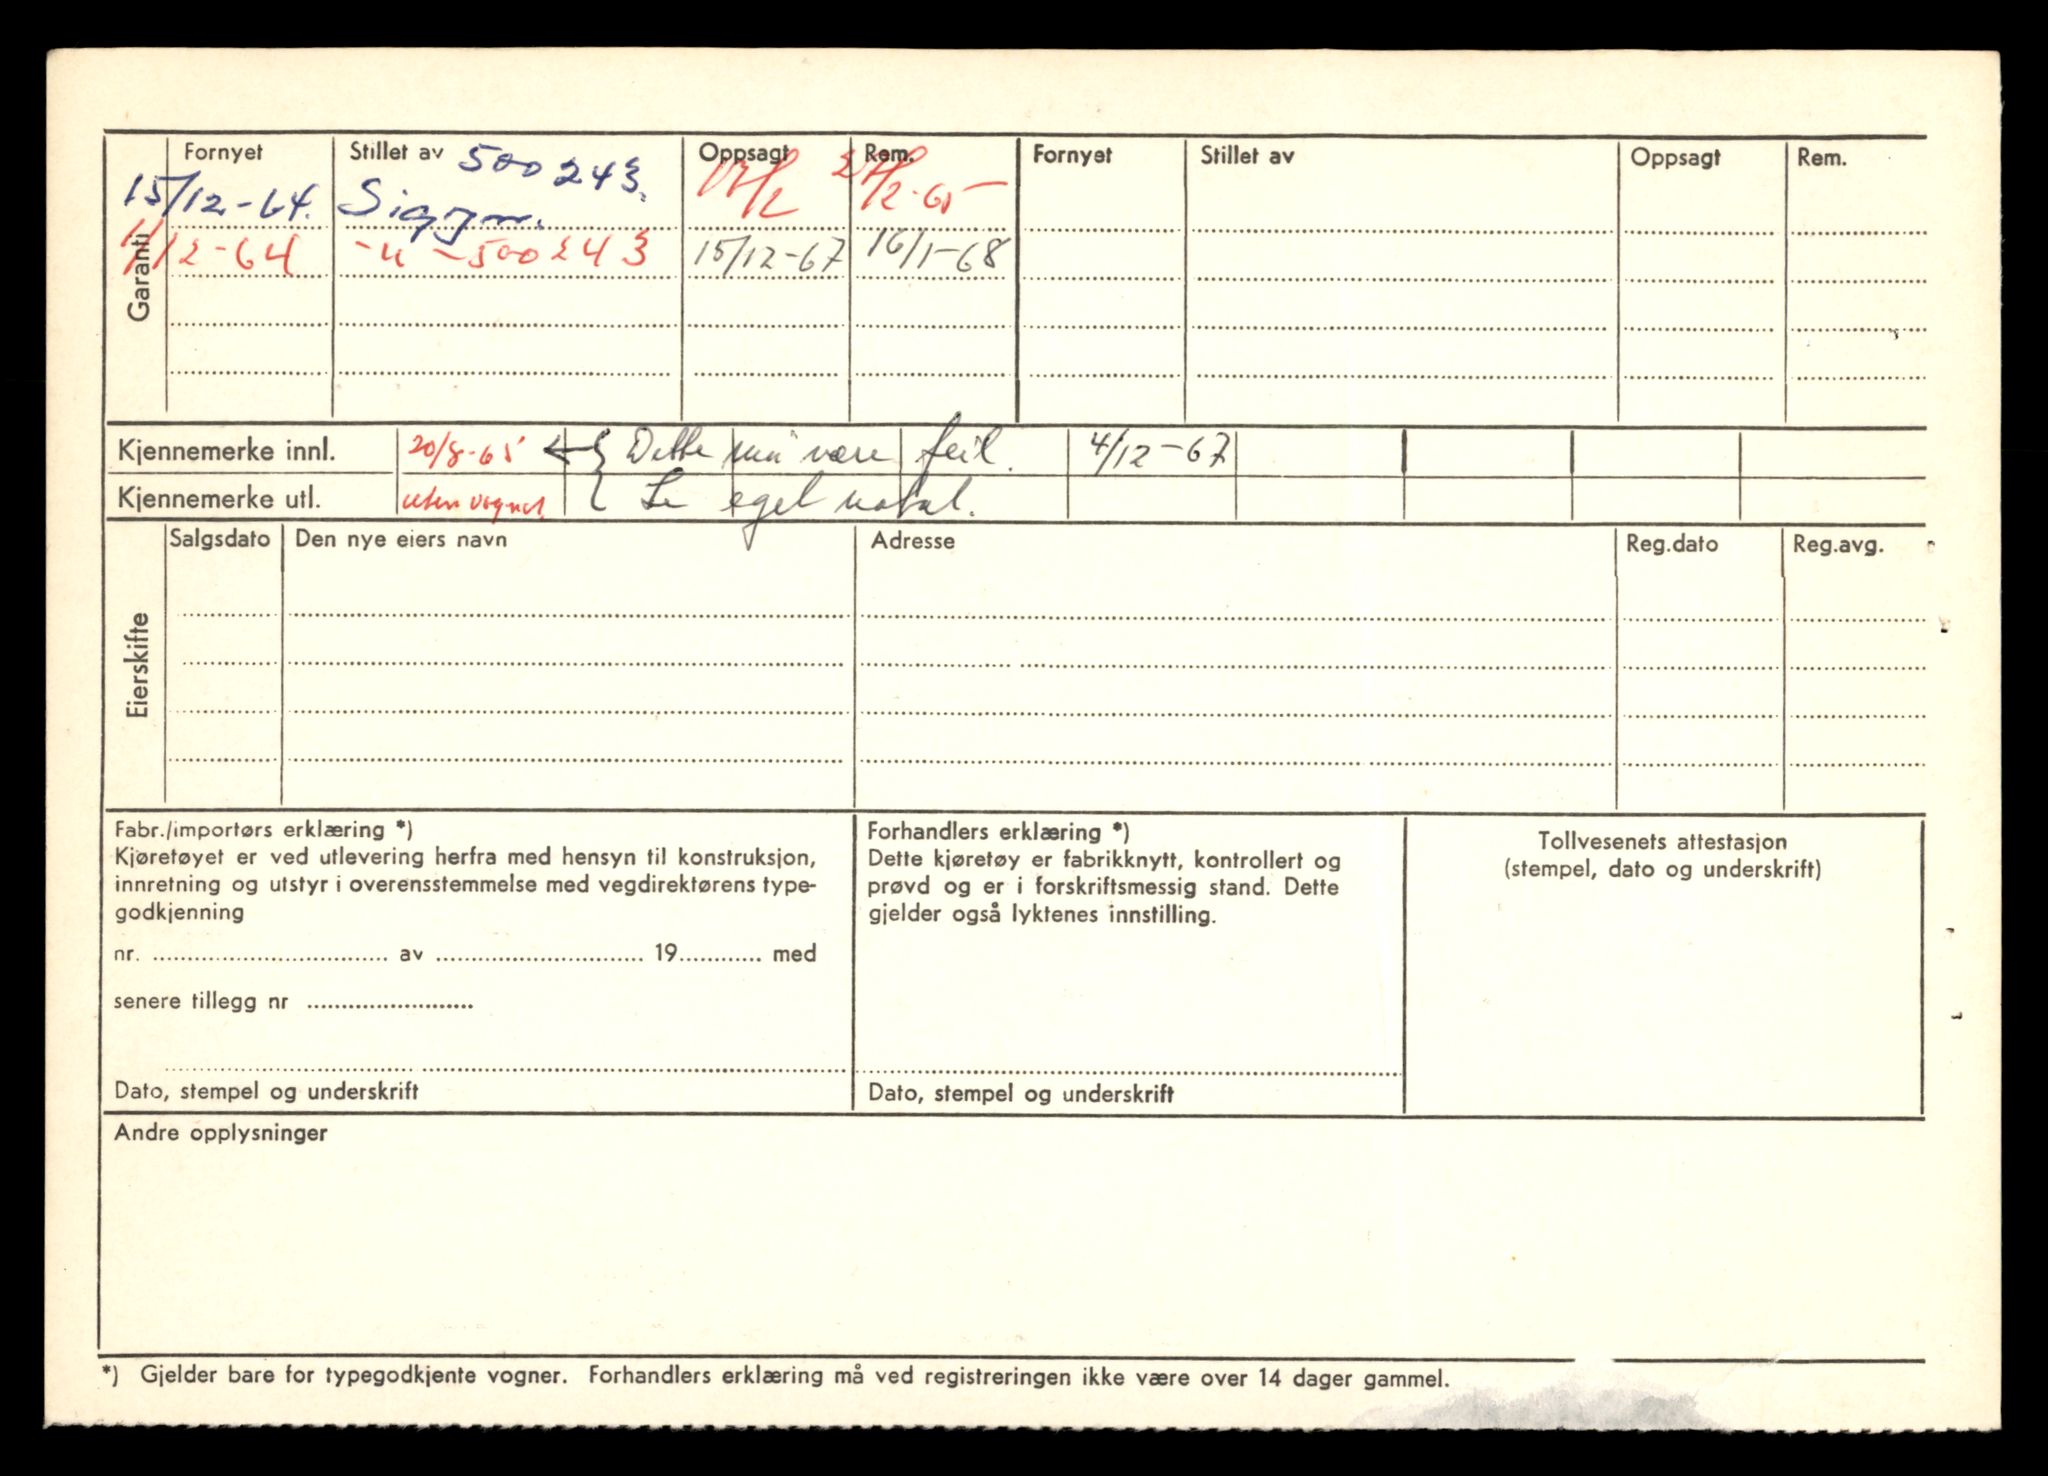 Garanti
Fornyet Stillet av 500243. Oppsagt Rem. Fornyet Stillet av Oppsagt Rem.
15/12-64.
12-64 -"- 500243 15/12-67 16/1-68
Kjennemerke innl. 20/8-65 ← { Dette må være feil. 4/12-67
Kjennemerke utl. uten vognk. Se eget notat.
Eierskifte
Salgsdato Den nye eiers navn Adresse Reg.dato Reg.avg.
Fabr./importørs erklæring *)
Kjøretøyet er ved utlevering herfra med hensyn til konstruksjon,
innretning og utstyr i overensstemmelse med vegdirektørens type-
godkjenning
nr. .................................. av .............................. 19............ med
senere tillegg nr ........................
Dato, stempel og underskrift
Forhandlers erklæring *)
Dette kjøretøy er fabrikknytt, kontrollert og
prøvd og er i forskriftsmessig stand. Dette
gjelder også lyktenes innstilling.
Dato, stempel og underskrift
Tollvesenets attestasjon
(stempel, dato og underskrift)
Andre opplysninger
*) Gjelder bare for typegodkjente vogner. Forhandlers erklæring må ved registreringen ikke være over 14 dager gammel.